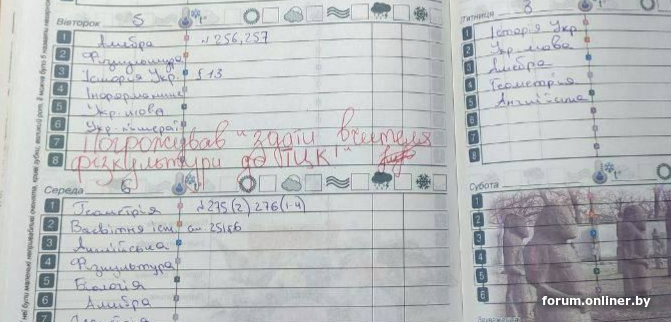 Вівторок 5
1 Алгебра № 256, 257
2 Фізкультура
3 Історія Укр. § 13
4 Інформатика
5 Укр. мова
6 Укр. літерат
7 Погрожував "здати вчителя
8 фізкультури до ТЦК!"
Середа 6
1 Геометрія № 275(2) 276(1-4)
2 Всесвітня іст.
3 Англійська
4 Фізкультура
5 Біологія
6 Алгебра
7
П'ятниця 8
1 Історія Укр.
2 Укр. мова
3 Алгебра
4 Геометрія
5 Англійська
6
7
8
Субота
1
2
3
4
5
6
forum.onliner.by